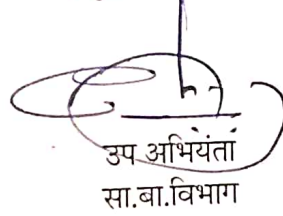 उप अभियंता
सा.बा.विभाग